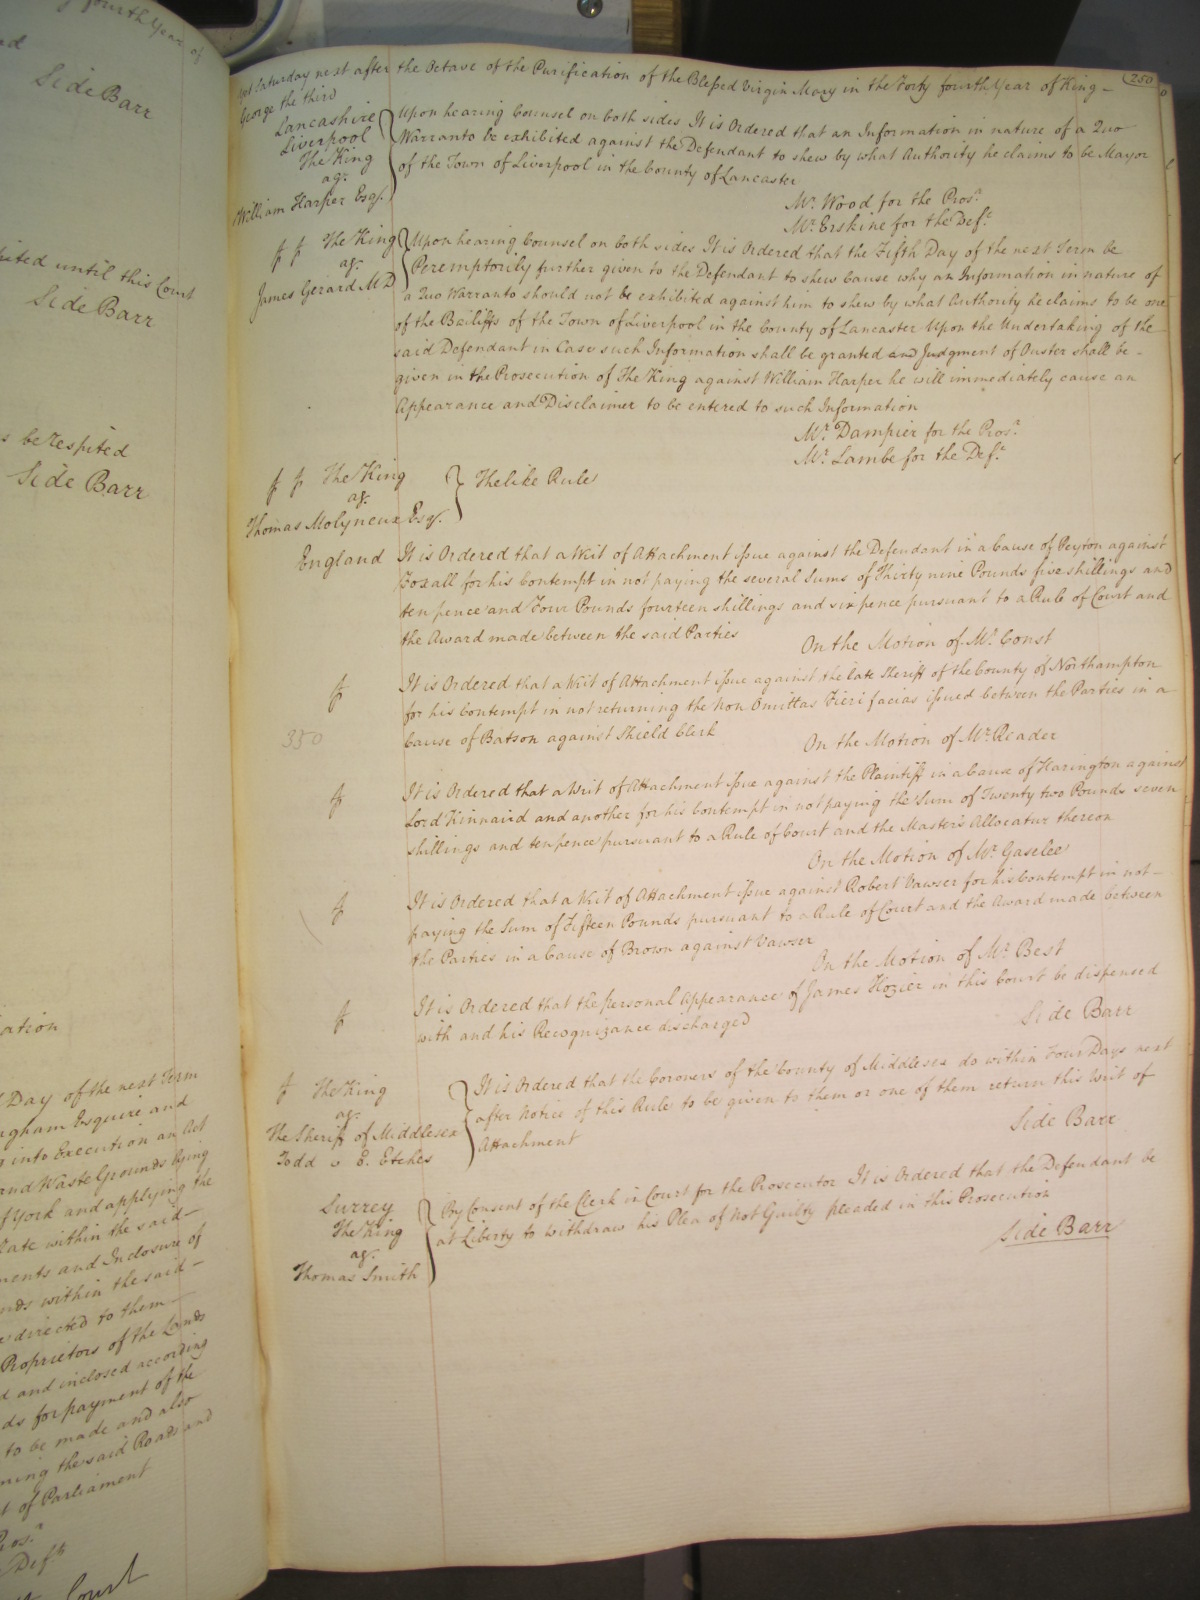 fourth Year of
Side Barr
until this Court
Side Barr
be respited
Side Barr
Day of the next Term
Esquire and
into Execution an Act
and Waste Grounds lying
York and applying the
within the said
and Inclosure of
within the said
directed to them
Proprietors of the Lands
and inclosed according
for payment of the
to be made and also
the said Roads and
of Parliament
Court
250
Saturday next after the Octave of the Purification of the Blessed Virgin Mary in the Forty fourth Year of King
George the third
Lancashire
Liverpool
The King
ag.
William Harper Esq.
Upon hearing Counsel on both sides It is Ordered that an Information in nature of a Quo
Warranto be exhibited against the Defendant to shew by what Authority he claims to be Mayor
of the Town of Liverpool in the County of Lancaster
Mr. Wood for the Pros.
Mr. Erskine for the Deft.
The King
ag.
James Gerard MD
Upon hearing Counsel on both sides It is Ordered that the Fifth Day of the next Term be
Peremptorily further given to the Defendant to shew Cause why an Information in nature of
a Quo Warranto should not be exhibited against him to shew by what Authority he claims to be one
of the Bailiffs of the Town of Liverpool in the County of Lancaster Upon the Undertaking of the
said Defendant in Case such Information shall be granted and Judgment of Ouster shall be
given in the Prosecution of The King against William Harper he will immediately cause an
Appearance and Disclaimer to be entered to such Information
Mr. Dampier for the Pros.
Mr. Lambe for the Deft.
The King
ag.
Thomas Molyneux Esq.
The like Rule
England
It is Ordered that a Writ of Attachment issue against the Defendant in a Cause of Peyton against
Foxall for his Contempt in not paying the several Sums of Thirty nine Pounds five shillings and
ten pence and Four Pounds fourteen shillings and six pence pursuant to a Rule of Court and
the Award made between the said Parties
On the Motion of Mr. Const
It is Ordered that a Writ of Attachment issue against the late Sheriff of the County of Northampton
for his Contempt in not returning the Non Omittas Fieri facias issued between the Parties in a
Cause of Batson against Shield Clerk
350
On the Motion of Mr. Reader
It is Ordered that a Writ of Attachment issue against the Plaintiff in a Cause of Harington against
Lord Kinnaird and another for his Contempt in not paying the Sum of Twenty two Pounds seven
shillings and ten pence pursuant to a Rule of Court and the Master's Allocatur thereon
On the Motion of Mr. Gaselee
It is Ordered that a Writ of Attachment issue against Robert Vawser for his Contempt in not
paying the Sum of Fifteen Pounds pursuant to a Rule of Court and the Award made between
the Parties in a Cause of Brown against Vawser
On the Motion of Mr. Best
It is Ordered that the personal Appearance of James Hozier in this Court be dispensed
with and his Recognizance discharged
Side Barr
The King
ag.
The Sheriff of Middlesex
Todd v E. Etches
It is Ordered that the Coroners of the County of Middlesex do within Four Days next
after Notice of this Rule to be given to them or one of them return this Writ of
Attachment
Side Barr
Surrey
The King
ag.
Thomas Smith
By Consent of the Clerk in Court for the Prosecutor It is Ordered that the Defendant be
at Liberty to withdraw his Plea of Not Guilty pleaded in this Prosecution
Side Barr